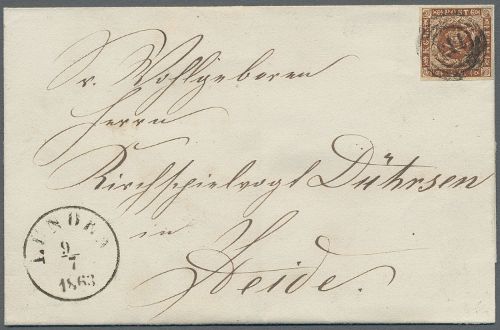 POST
Sr. Wohlgeboren
Herrn
Kirchspielvogt Dührsen
in
Heide.
LUNDEN
9/7
1863